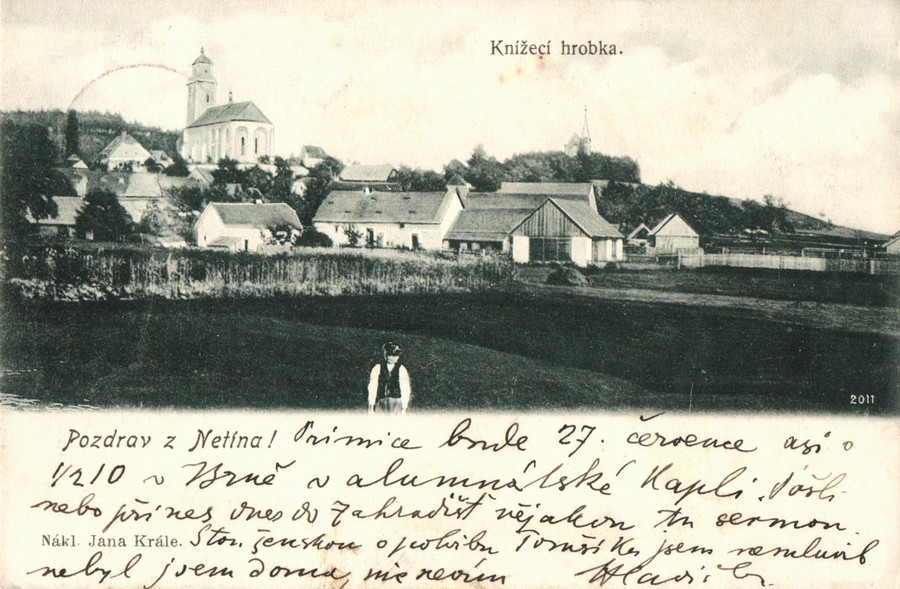 Knížecí hrobka.
2011
Pozdrav z Netína! Primice bude 27. července asi o
1/210 v Brně v alumnátské Kapli. Pošli
nebo přines dnes do Zahradišť nějakou tu sermon.
Nákl. Jana Krále. jsem nemluvil
nebyl jsem doma, nic nevím